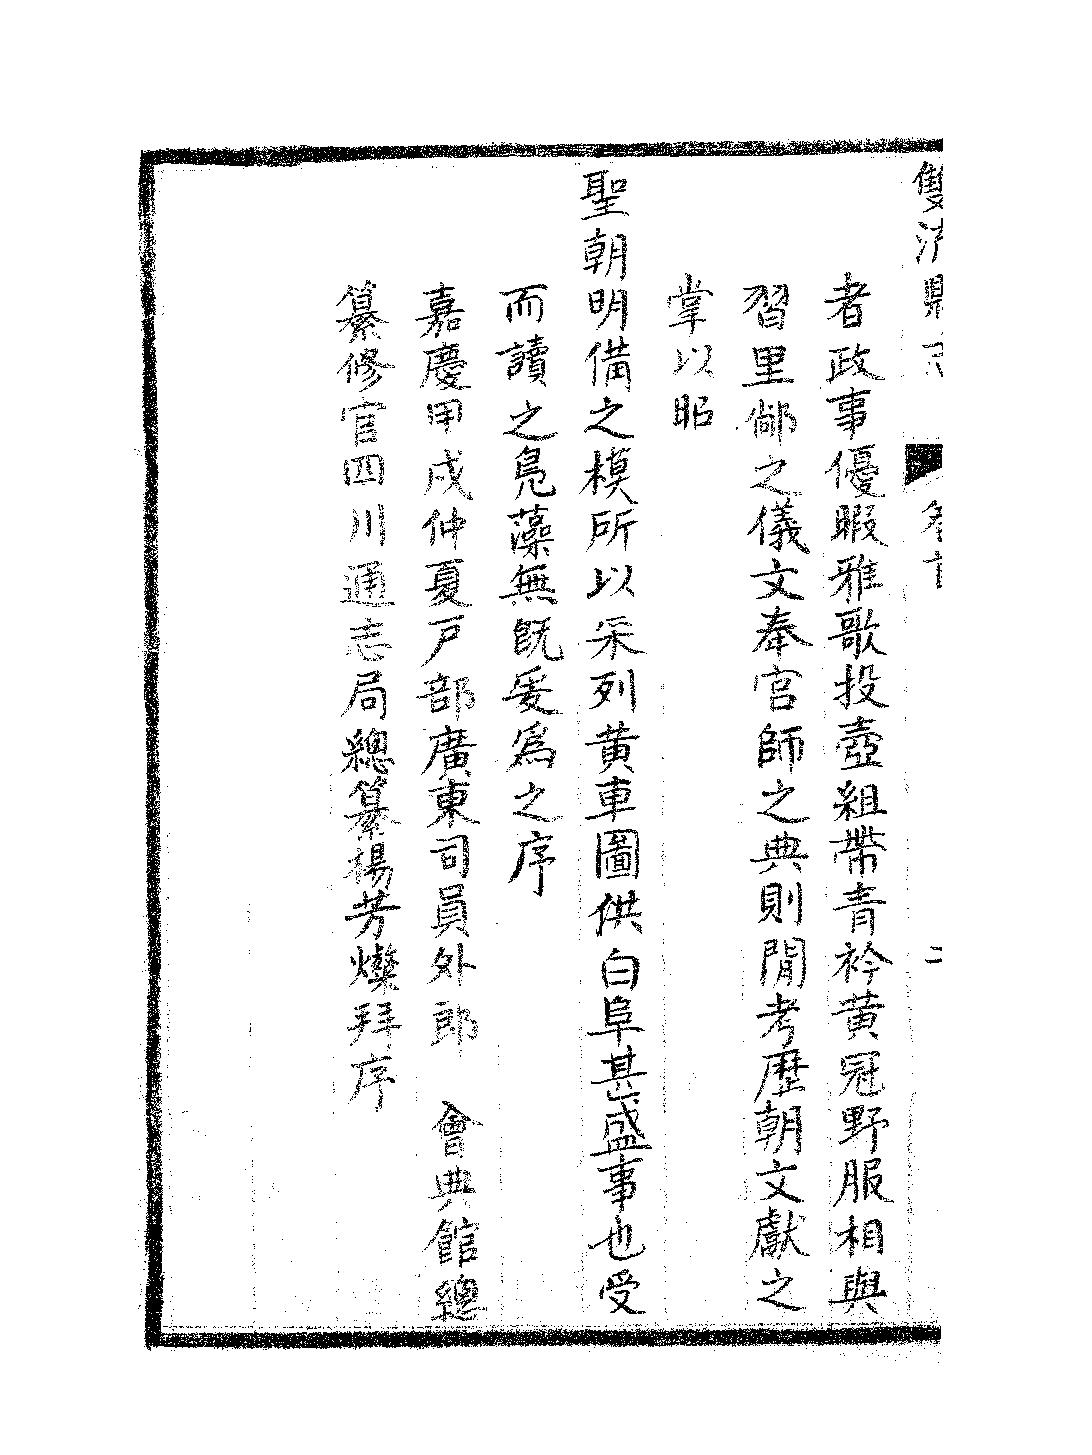 雙流縣志 卷首 二
者政事優暇雅歌投壺組帶青衿黄冠野服相與
習里鄉之儀文奉官師之典則閒考歷朝文獻之
掌以昭
聖朝明備之模所以采列黄車圖供白阜甚盛事也受
而讀之鳧藻無既爰爲之序
嘉慶甲戌仲夏戸部廣東司員外郎 會典館總
纂修官四川通志局總纂楊芳燦拜序